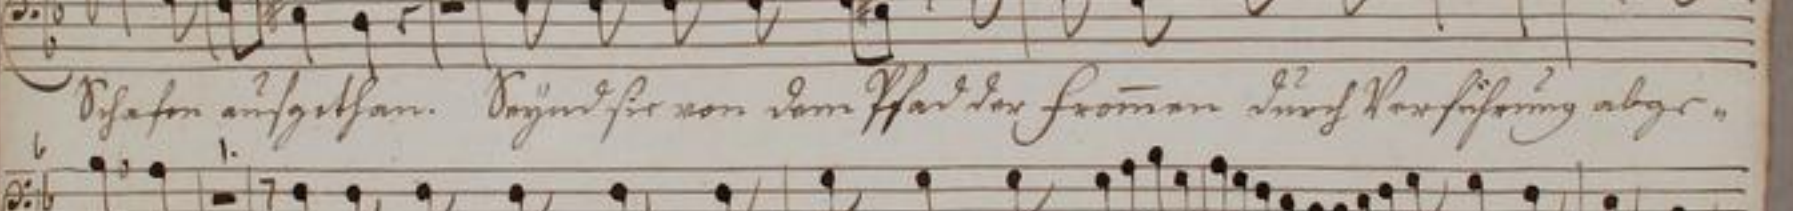 Schafen ausgethan. Seynd sie von dem Pfad der from̅en durch Verführung abge=
6 1.